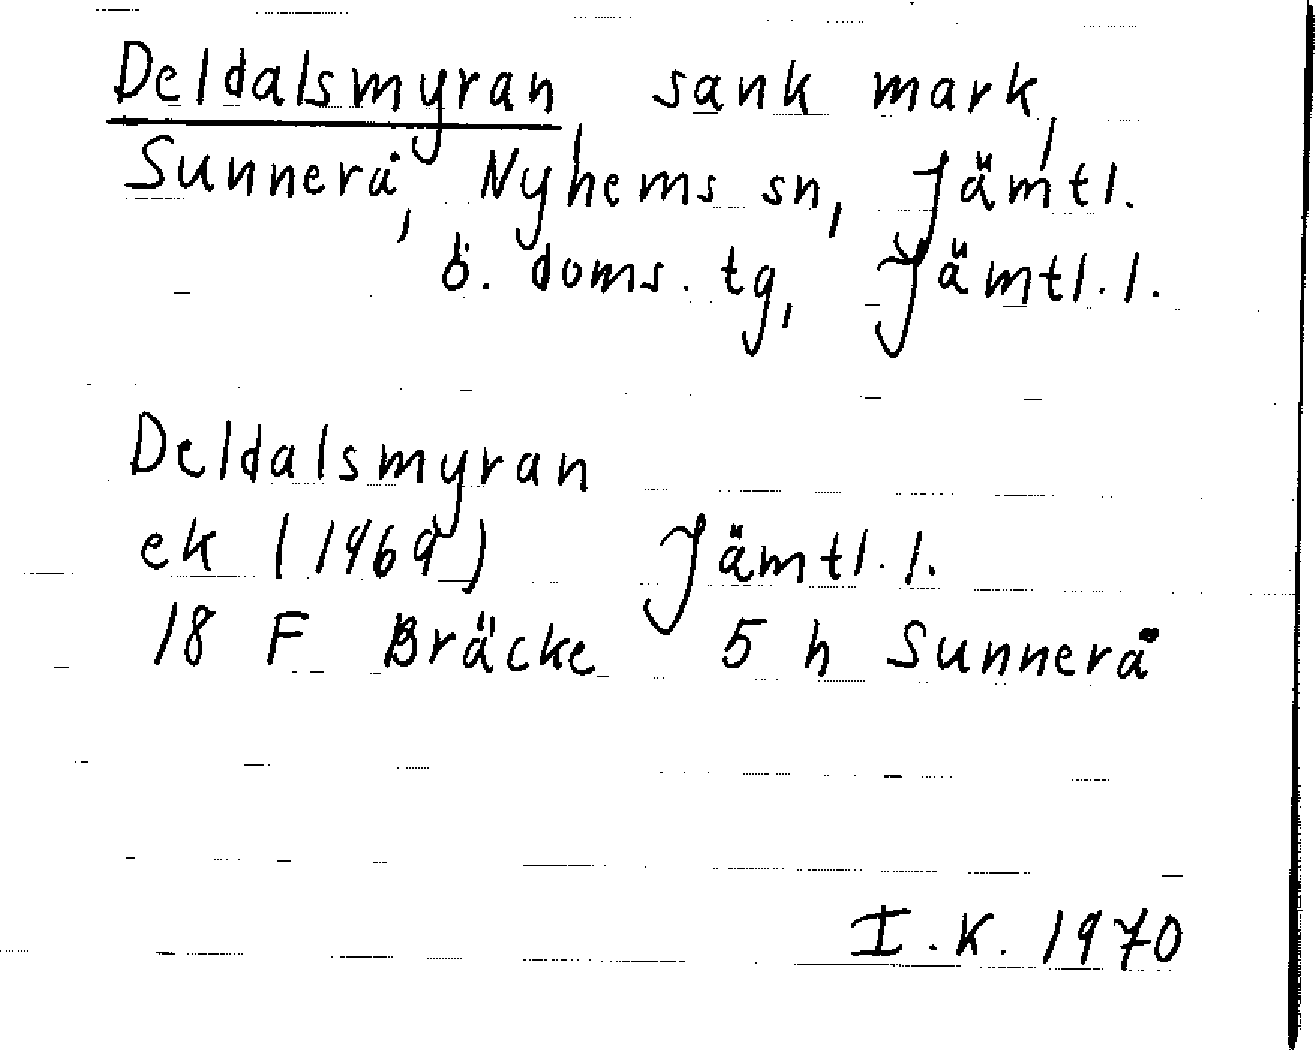 Deldalsmyran sank mark,
Sunnerå, Nyhems sn, Jämtl.
ö. doms. tg, Jämtl. l.
Deldalsmyran
ek (1969) Jämtl. l.
18 F Bräcke 5 h Sunnerå
I. K. 1970